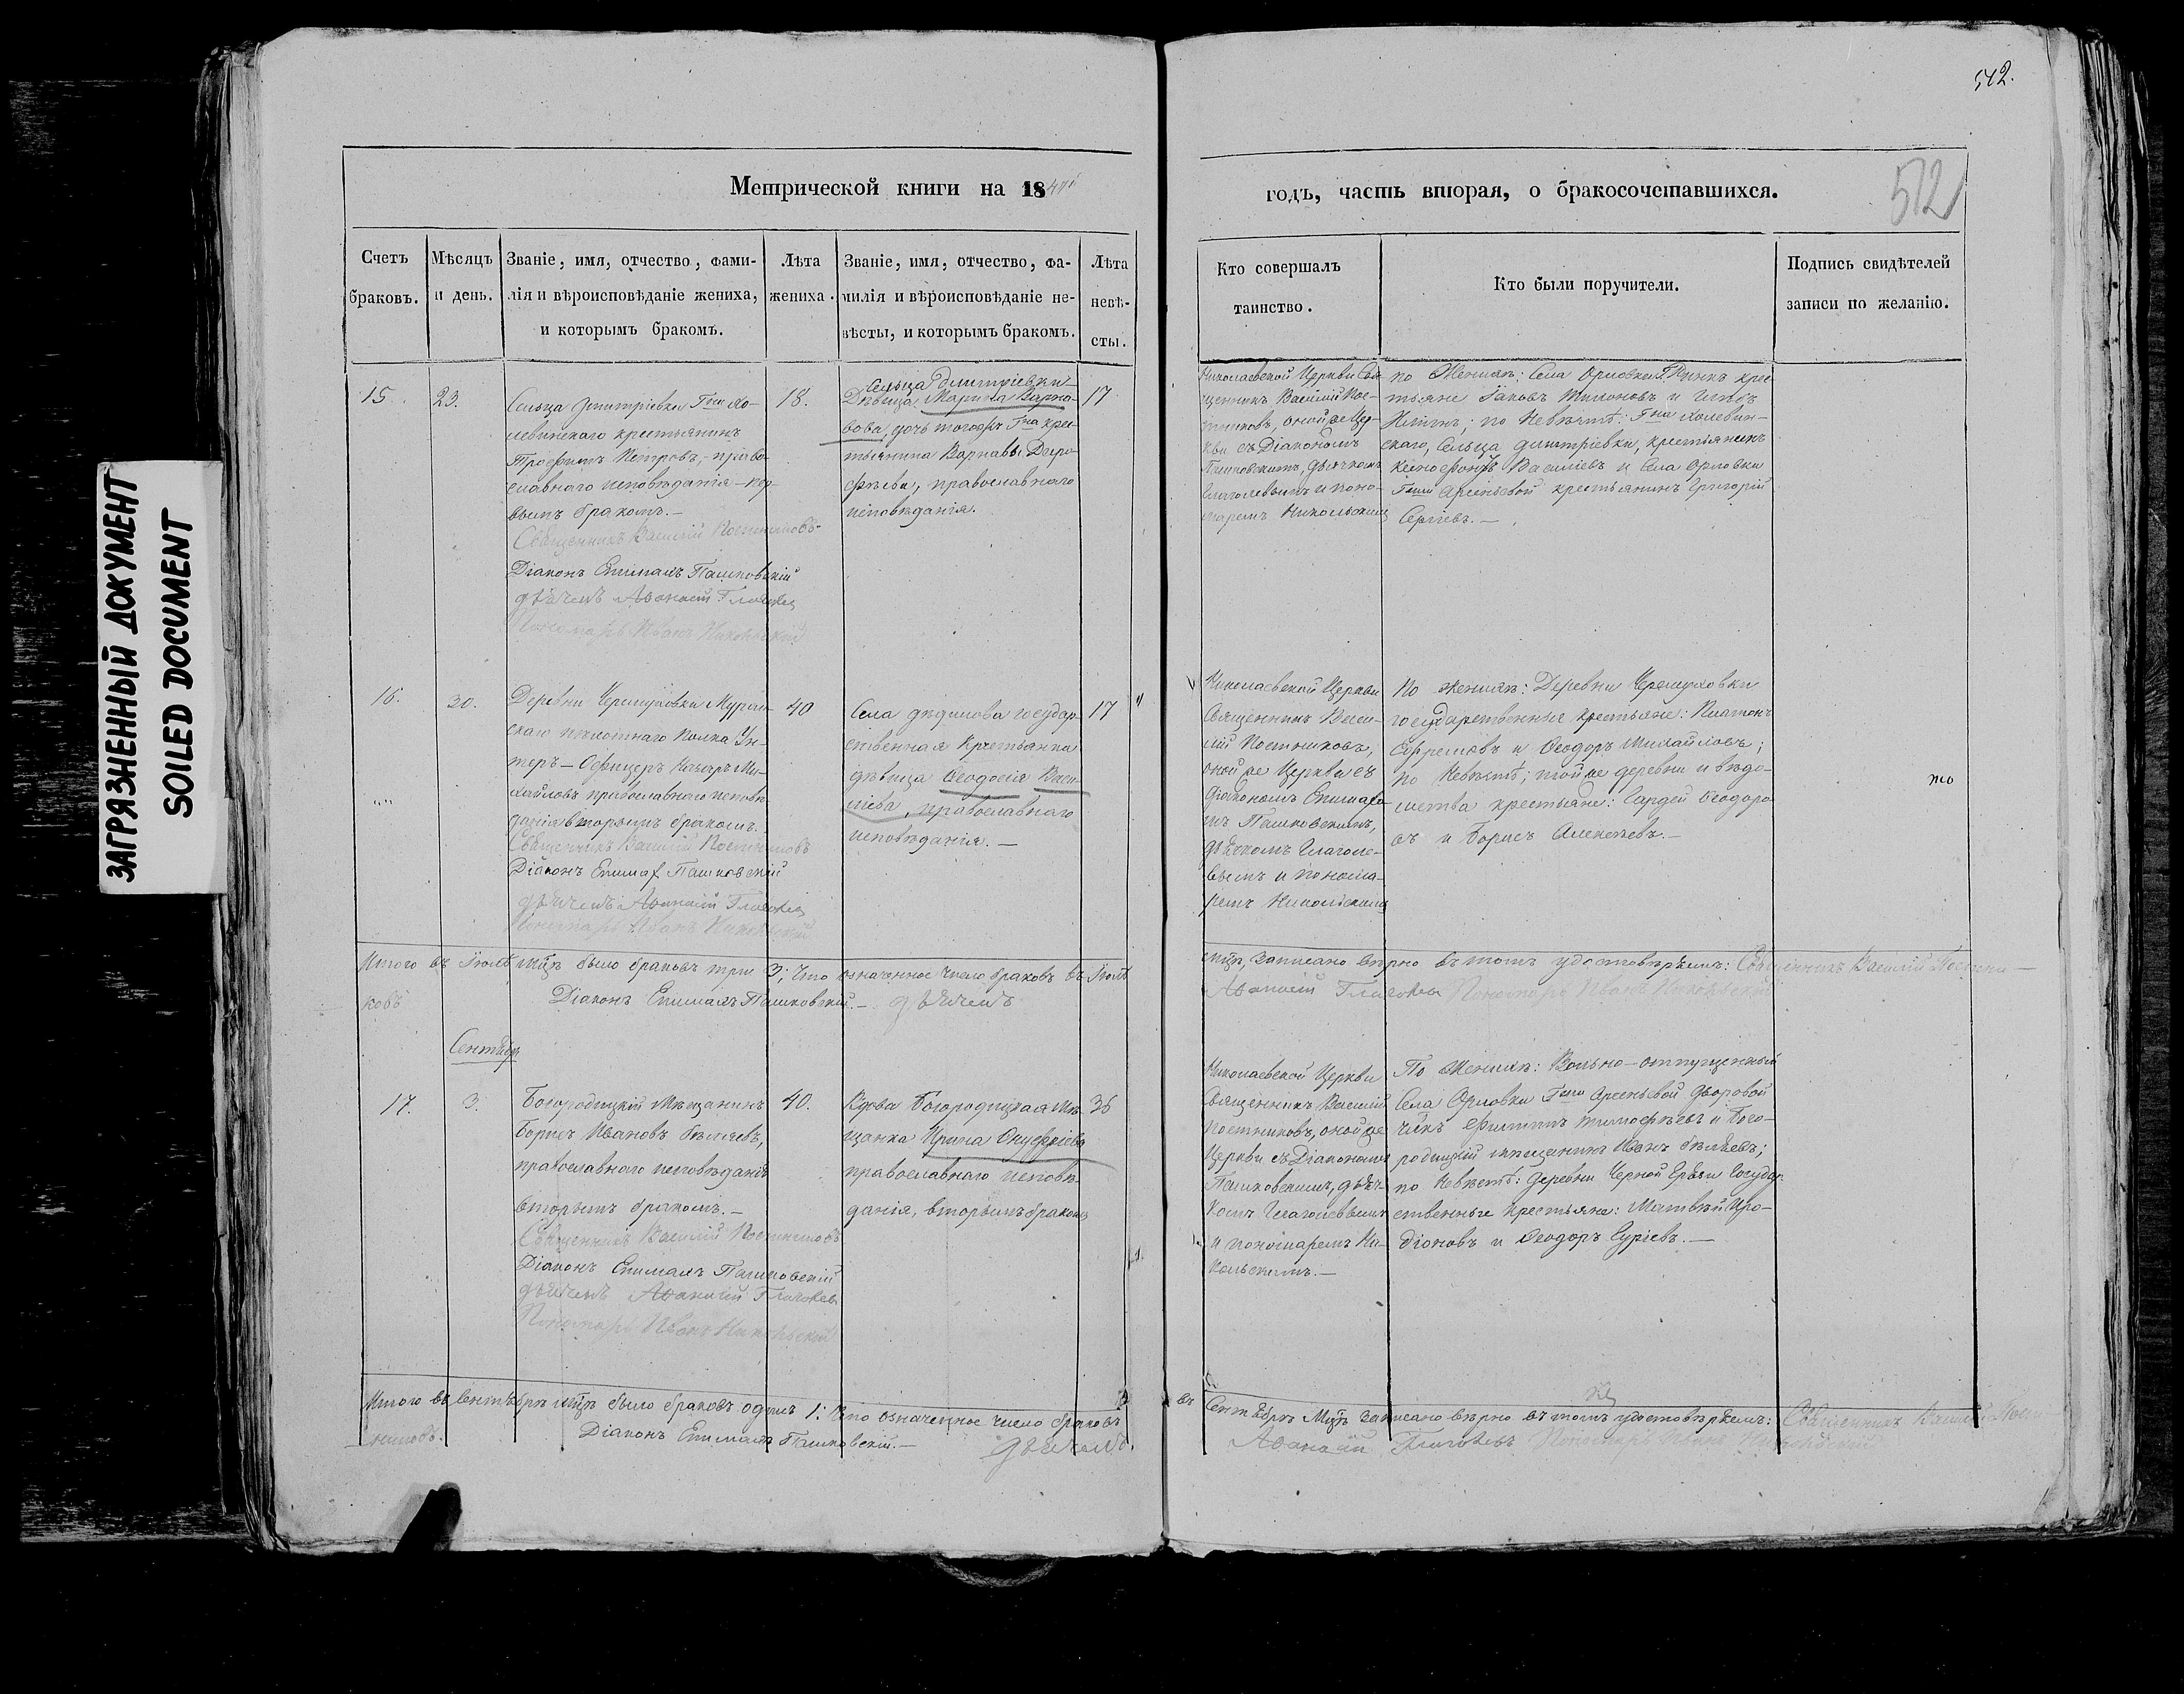 542.
512
ЗАГРЯЗНЕННЫЙ ДОКУМЕНТ
SOILED DOCUMENT
Метрической книги на 18
годъ, часть вторая, о бракосочетавшихся.
Счетъ
браковъ.
Мѣсяцъ
и день.
Званіе, имя, отчество, фами-
лія и вѣроисповѣданіе жениха,
и которымъ бракомъ.
Лѣта
жениха.
Званіе, имя, отчество, фа-
милія и вѣроисповѣданіе не-
вѣсты, и которымъ бракомъ.
Лѣта
невѣ-
сты.
Кто совершалъ
таинство.
Кто были поручители.
Подпись свидѣтелей
записи по желанію.
15.
23.
Сельца Дмитріевки Гна Хо-
левинскаго крестьянинъ
Трофимъ Петровъ, право-
славнаго исповѣданія – пер-
вымъ бракомъ. –
Священникъ Василій Постниковъ
Діаконъ Епимахъ Пашковскій
дьячекъ Аѳанасій Глаголев
Пономарь Иванъ Никольскій
18.
Сельца Дмитріевки
Дѣвица Марина Варна-
вова, дочь тогожъ Гна крес-
тьянина Варнавы Доро-
фѣева, православнаго
исповѣданія.
17
Николаевской Церкви Свя-
щенникъ Василій Пос-
тниковъ, оной же Цер-
кви съ Діакономъ
Пашковскимъ, дьячкомъ
Глаголевымъ и поно-
маремъ Никольскимъ
по Женихѣ: Села Орловки крес-
тьяне Іаковъ и
по Невѣстѣ: Гна Холевин-
скаго, Сельца Дмитріевки, крестьянинъ
Ксенофонтъ Василіевъ и Села Орловки
Гжи Арсеньевой крестьянинъ Григорій
Сергіевъ. –
16.
30.
Деревни Черемуховки Муром-
скаго пѣхотнаго Полка Ун-
теръ – Офицеръ Ми-
хайловъ православнаго исповѣ-
данія вторымъ бракомъ.
Священникъ Василій Постниковъ
Діаконъ Епимах Пашковскій
дьячекъ Аѳанасій Глаголев
Пономарь Иванъ Никольскій
40
Села Дѣдилова государ-
ственная Крестьянка
дѣвица Ѳеодосія Васи-
ліева, православнаго
исповѣданія. –
17
Николаевской Церкви
Священникъ Васи-
лій Постниковъ,
оной же Церкви съ
Діакономъ Епимахо-
мъ Пашковскимъ,
дьячкомъ Глаголе-
вымъ и понома-
ремъ Никольскимъ
По Женихѣ: Деревни Черемуховки
государственные крестьяне: Платонъ
Ефремовъ и Ѳеодоръ Михайловъ;
по Невѣстѣ: той же деревни и вѣдо-
мства крестьяне: Гордей Ѳеодоро-
въ и Борисъ Алексѣевъ. –
Итого въ Іюлѣ мцѣ было браковъ три 3; Что означенное число браковъ въ Іюлѣ
мцѣ, записано вѣрно въ томъ удостовѣряемъ: Священникъ Василій Постни-
ковъ
Діаконъ Епимахъ Пашковскій. – дьячекъ
Аѳанасій Глаголев Пономарь Иванъ Никольскій
Сентябрь
17.
3.
Богородицкій Мѣщанинъ
Борисъ Ивановъ Бѣляевъ,
православнаго исповѣданія
вторымъ бракомъ. –
Священникъ Василій Постниковъ
Діаконъ Епимахъ Пашковскій
дьячекъ Аѳанасій Глаголевъ
Пономарь Иванъ Никольскій
40.
Вдова Богородицкая Мѣ-
щанка Ирина Онуфріева
православнаго исповѣ-
данія, вторымъ бракомъ
36
Николаевской Церкви
Священникъ Василій
Постниковъ, оной же
Церкви съ Діакономъ
Пашковскимъ, дьяч-
комъ Глаголевымъ
и пономаремъ Ни-
кольскимъ. –
По Женихѣ: Вольно – отпущенный
Села Орловки Гжи Арсеньевой дворовой
Филиппъ Тимофѣевъ и Бого-
родицкій мѣщанинъ Иванъ Бѣляевъ;
по Невѣстѣ: Деревни Черной Грязи Государ-
ственные Крестьяне: Матвѣй Иро-
діоновъ и Ѳеодоръ Гуріевъ. –
Итого въ Сентябрѣ мцѣ было браковъ одинъ 1: Что означенное число браковъ
въ Сентябрѣ Мцѣ записано вѣрно въ томъ удостовѣряемъ: Священникъ Василій Пост-
никовъ.
Діаконъ Епимахъ Пашковскій. – дьячекъ
Аѳанасій Глаголевъ Пономарь Иванъ Никольскій